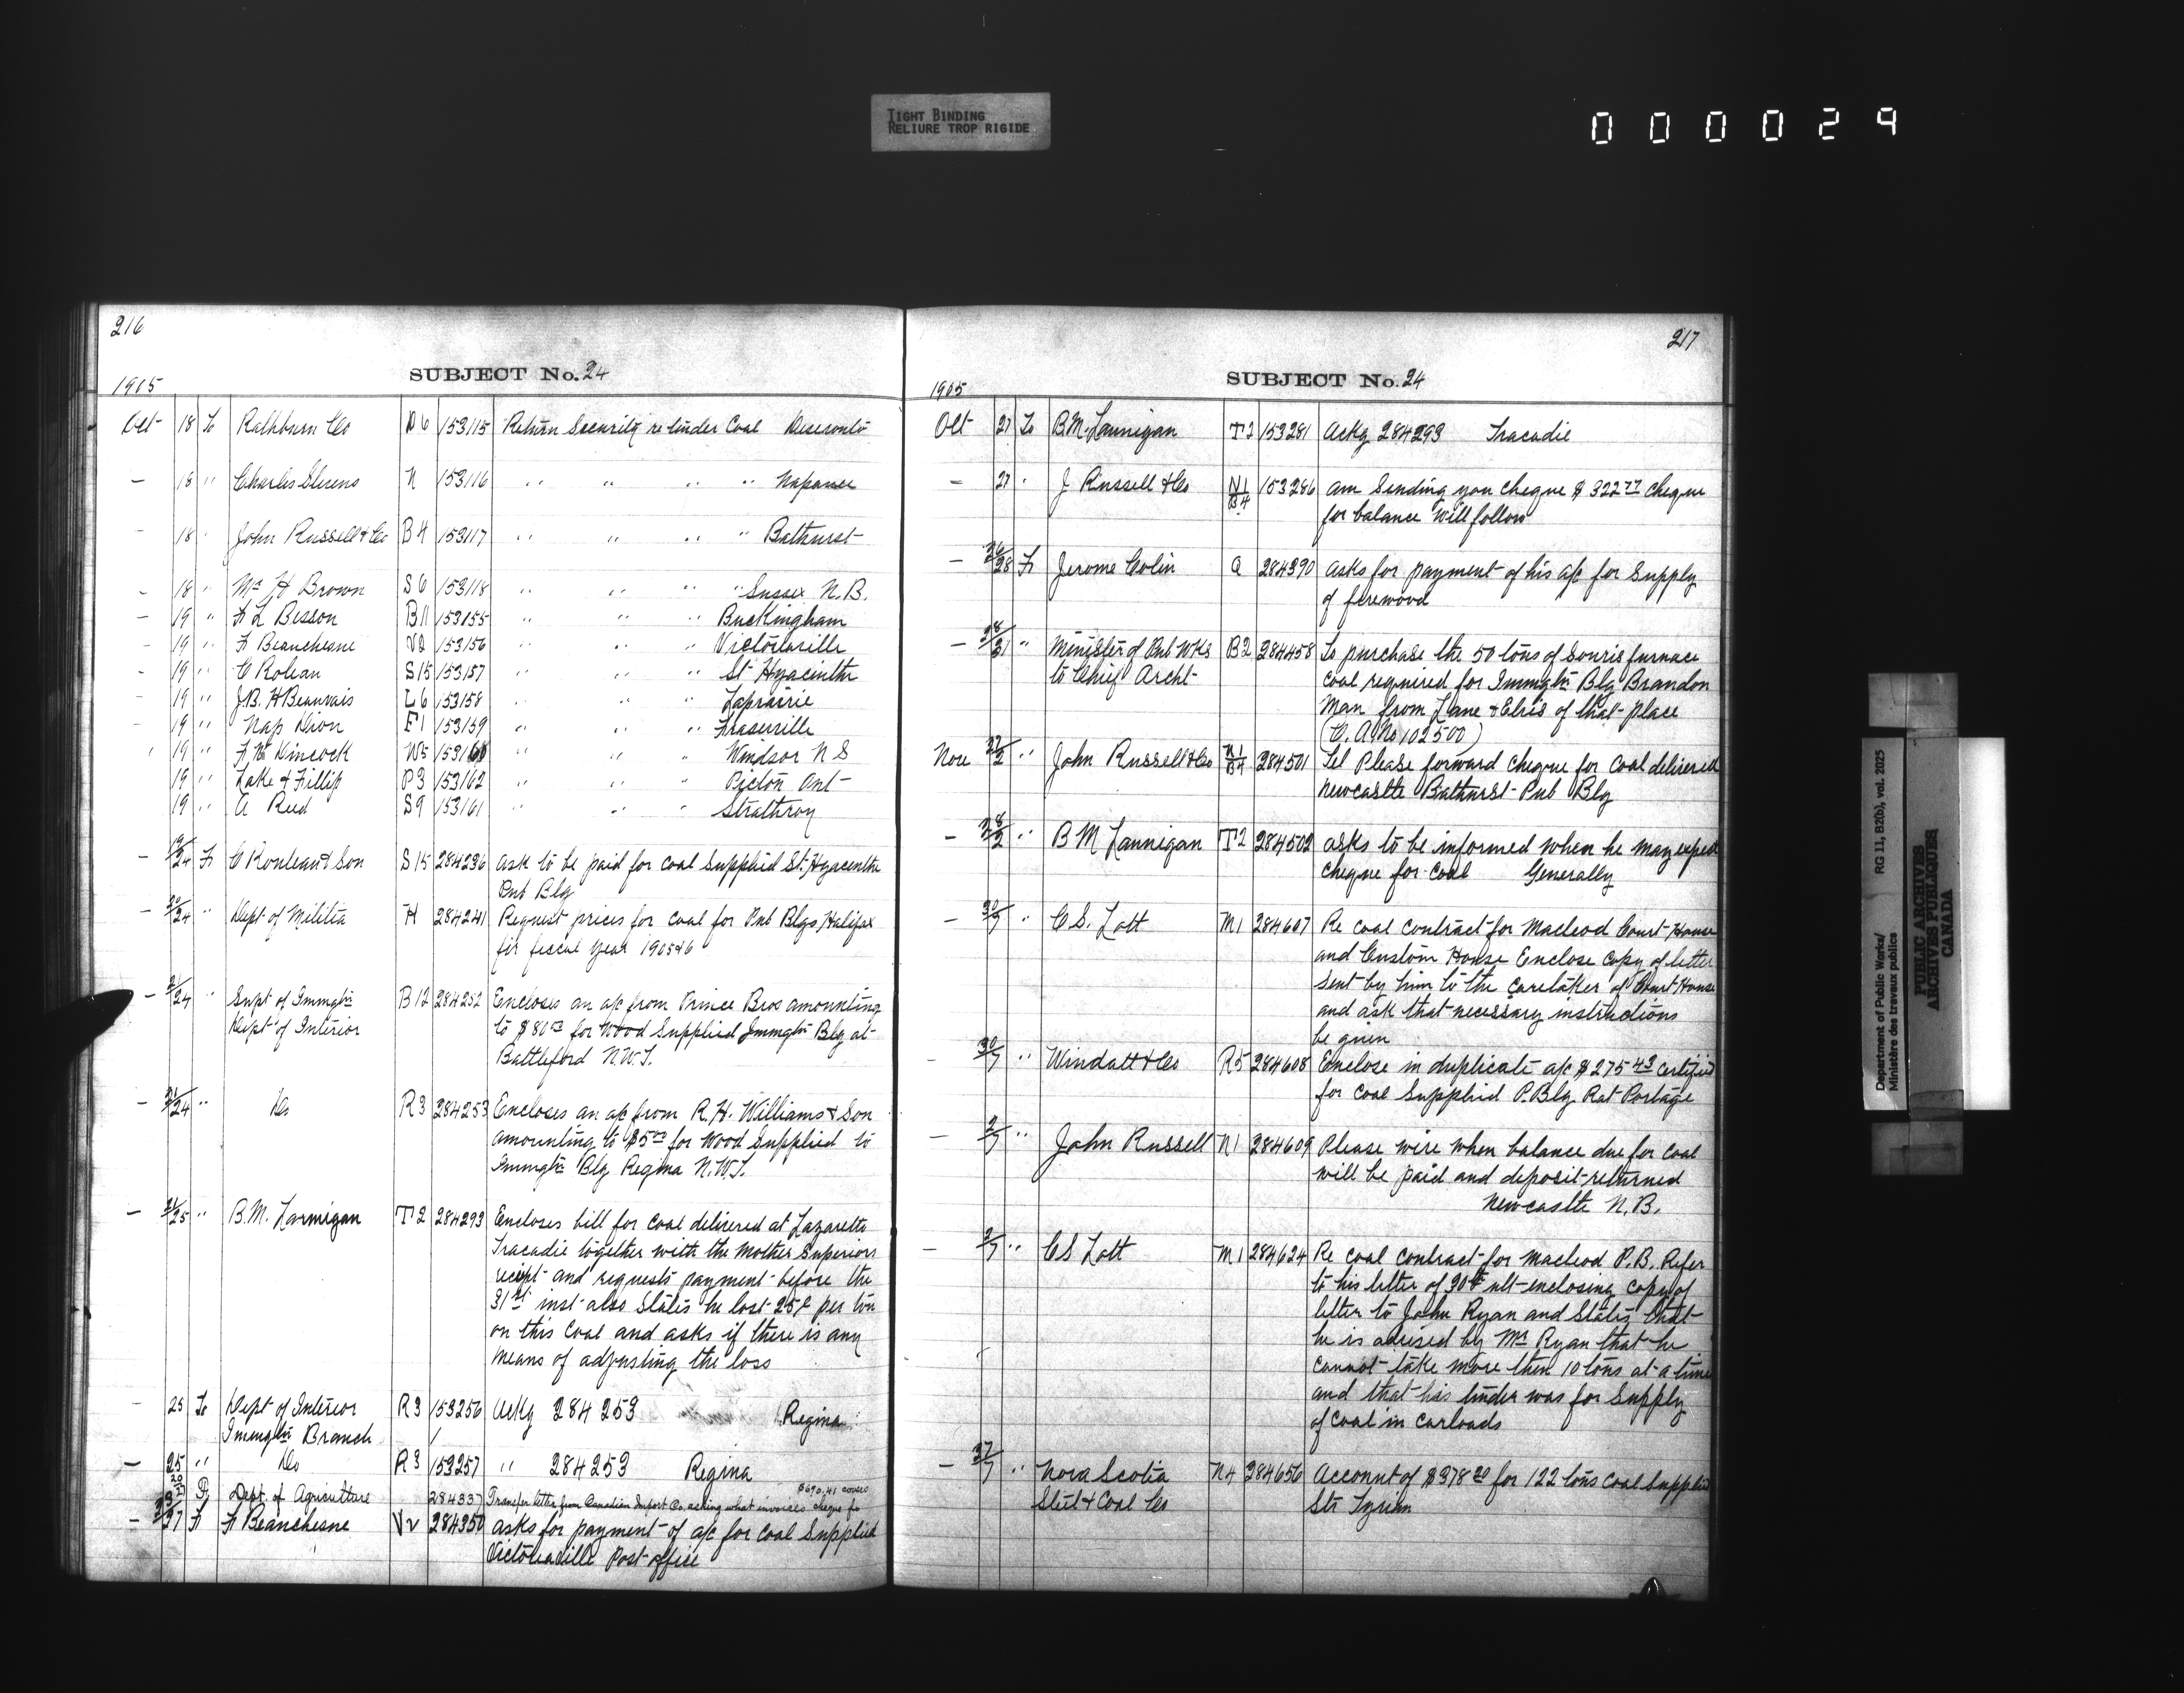 TIGHT BINDING
RELIURE TROP RIGIDE
000029
216
SUBJECT No. 24
1905
Oct 18 To Rathburn Co D6 153115 Return Security re tinder Coal Deseronto
— 18 " Charles Stevens N 153116 " " " " Napanee
- 18 " John Russell & Co B4 153117 " " " " Bathurst
- 18 " Mr H Brown S6 153118 " " " " Sussex N.B.
- 19 " F L Besson B11 153155 " " " Buckingham
- 19 " F Beauchesne V2 153156 " " " Victoriaville
- 19 " C Roleau S15 153157 " " " St Hyacinthe
- 19 " J.B. H Beauvais L6 153158 " " " Laprairie
- 19 " Nap Dion F1 153159 " " " Fraserville
" 19 " F.W. Hincock W5 153160 " " " Windsor N S
19 " Lake & Fillip P3 153162 " " " Picton Ont
19 " A Reed S9 153161 " " " Strathroy
— 19/24 Fr C Rouleau & Son S15 284236 Ask to be paid for coal Supplied St. Hyacinthe
Pub Blg
— 20/24 " Dept of Militia H 284241 Request prices for coal for Pub Blgs Halifax
for fiscal year 1905&6
— 21/24 " Supt of Immgtn B12 284252 Encloses an a/c from Prince Bros amounting
Dept of Interior to $81 for Wood Supplied Immgtn Blg at
Battleford N.W.T.
— 21/24 " Do R3 284253 Encloses an a/c from R.H. Williams & Son
amounting to $5 for Wood Supplied to
Immgtn Blg Regina N.W.T.
— 21/25 " B.M. Larmigan T2 284293 Encloses bill for coal delivered at Lazaretto
Tracadie together with the Mother Superiors
reciept and requests payment before the
31st inst also States he lost 25¢ per ton
on this Coal and asks if there is any
means of adjusting the loss
- 25 To Dept of Interior R3 153256 Ackg 284253 Regina
Immgtn Branch
— 25 " Do R3 153257 " 284253 Regina
Dept. of Agriculture 284337 Transfer letter from Canadian Import Co. asking what invoices cheque for
$690.41 covers
— 27 Fr F Beauchesne V2 284350 asks for payment of a/c for Coal Supplied
Victoriaville Post office
217
SUBJECT No. 24
1905
Oct 27 To B.M. Lannigan T2 153281 Ackg 284293 Tracadie
— 27 " J Russell & Co N1/B4 153286 am Sending you cheque $322.77 cheque
for balance will follow
— 26/28 Fr Jerome Colin A 284390 asks for payment of his a/c for Supply
of firewood
— 28/31 " Minister of Pub Wks B2 284458 To purchase the 50 tons of Souris furnace
to Chief Archt coal required for Immgtn Blg Brandon
Man from Lane & Elvis of that place
(C.A. No 102500)
Nov " John Russell & Co N1/B4 284501 Tel Please forward cheque for coal delivered
Newcastle Bathurst Pub Blg
— 28/2 " B M Lannigan T2 284502 asks to be informed when he may expect
cheque for coal Generally
— 30/7 " C.S. Lott M1 284607 Re coal contract for Macleod Court House
and Custom House Enclose copy of letter
sent by him to the caretaker of Court House
and ask that necessary instructions
be given
- 30/7 " Windatt & Co R5 284608 Enclose in duplicate a/c $275.43 certified
for coal Supplied P. Blg Rat Portage
— 2/7 " John Russell N1 284609 Please wire when balance due for coal
will be paid and deposit returned
Newcastle N.B.
— 2/7 " C S Lott M1 284624 Re coal contract for Macleod P.B. Refer
to his letter of 30th ult enclosing copy of
letter to John Ryan and States that
he is advised by Mr Ryan that he
cannot take more then 10 tons at a time
and that his tinder was for Supply
of coal in carloads
— " Nova Scotia N4 284656 Account of $378.20 for 122 tons coal supplied
Steel & Coal Co Str Tyrian
Department of Public Works/ RG 11, B2(b), vol. 2025
Ministère des travaux publics
PUBLIC ARCHIVES
ARCHIVES PUBLIQUES
CANADA